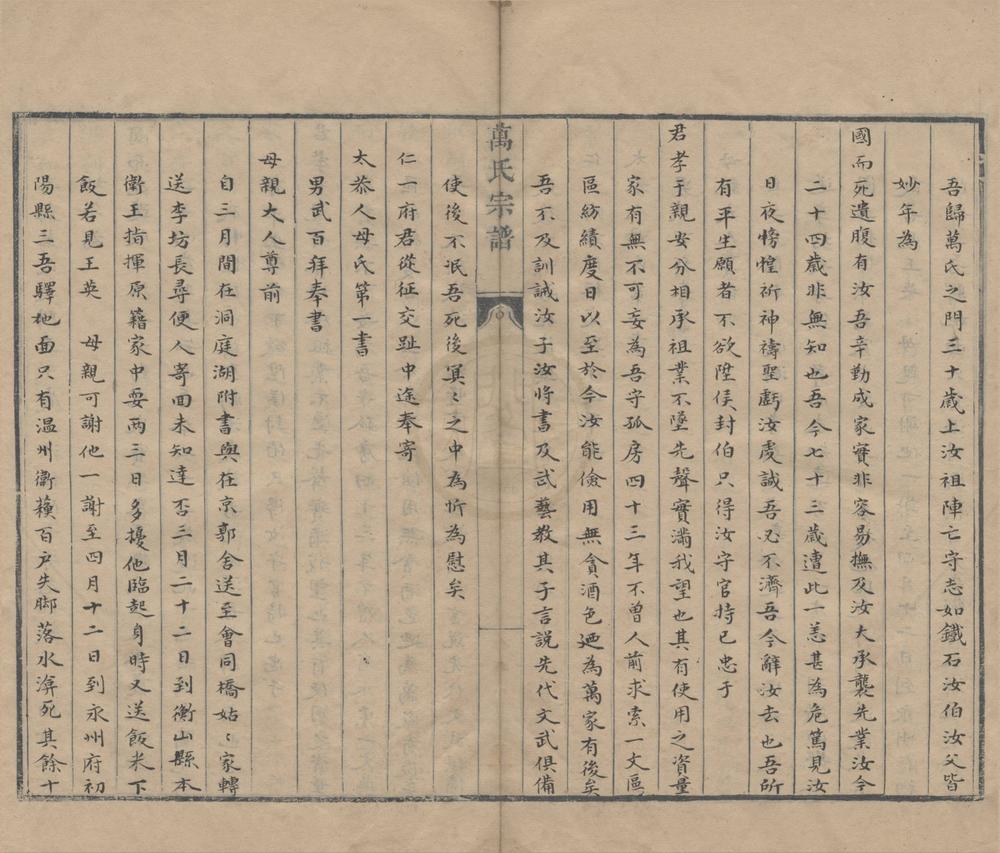 吾歸萬氏之門三十歲上汝祖陣亡守志如鐵石汝伯汝父皆
妙年為
國而死遺腹有汝吾辛勤成家實非容易撫及汝大承襲先業汝今
二十四歲非無知也吾今七十三歲遭此一恙甚為危篤見汝
日夜徬惶祈神禱聖虧汝虔誠吾必不濟吾今辭汝去也吾所
有平生願者不欲陞侯封伯只得汝守官持已忠于
君孝于親安分相承祖業不墜先聲實滿我望也其有使用之資量
家有無不可妄為吾守孤房四十三年不曾人前求索一文區
區紡績度日以至於今汝能儉用無貪酒色迺為萬家有後矣
吾不及訓誡汝子汝將書及武藝教其子言說先代文武俱備
萬氏宗譜
使後不泯吾死後冥〻之中為忻為慰矣
仁一府君從征交趾中途奉寄
太恭人母氏第一書
男武百拜奉書
母親大人尊前
自三月間在洞庭湖附書與在京郭舍送至會同橋姑〻家轉
送李坊長尋便人寄回未知達否三月二十二日到衡山縣本
衛王指揮原籍家中耍兩三日多擾他臨起身時又送飯米下
飯若見王英　母親可謝他一謝至四月十二日到永州府初
陽縣三吾驛地面只有温州衛蘓百戶失脚落水渰死其餘十